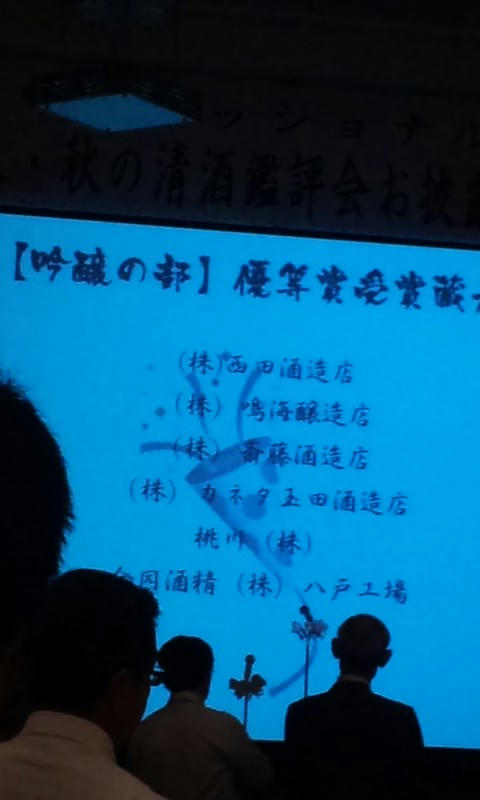 ッショナル
秋の清酒鑑評会お披露
【吟醸の部】優等賞受賞蔵
(株)西田酒造店
(株) 鳴海醸造店
(株) 斎藤酒造店
(株) カネタ玉田酒造店
桃川 (株)
合同酒精 (株) 八戸工場